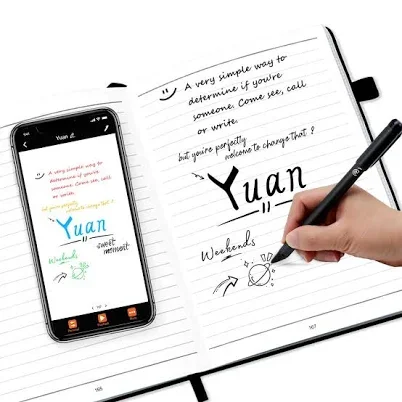 A very simple way to
determine if you're
someone. Come see, call
or write.
but you're perfectly
welcome to change that?
Yuan
Weekends
167
Yuan
A very simple way to
determine if you're
someone. Come see, call
or write.
but you're perfectly
welcome to change that?
Yuan
sweet
moment
Weekends
165